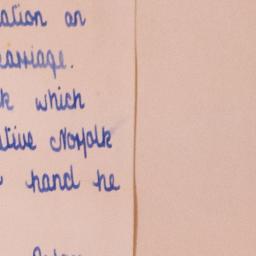 ation on
arriage.
k which
ative Norfolk
hand he